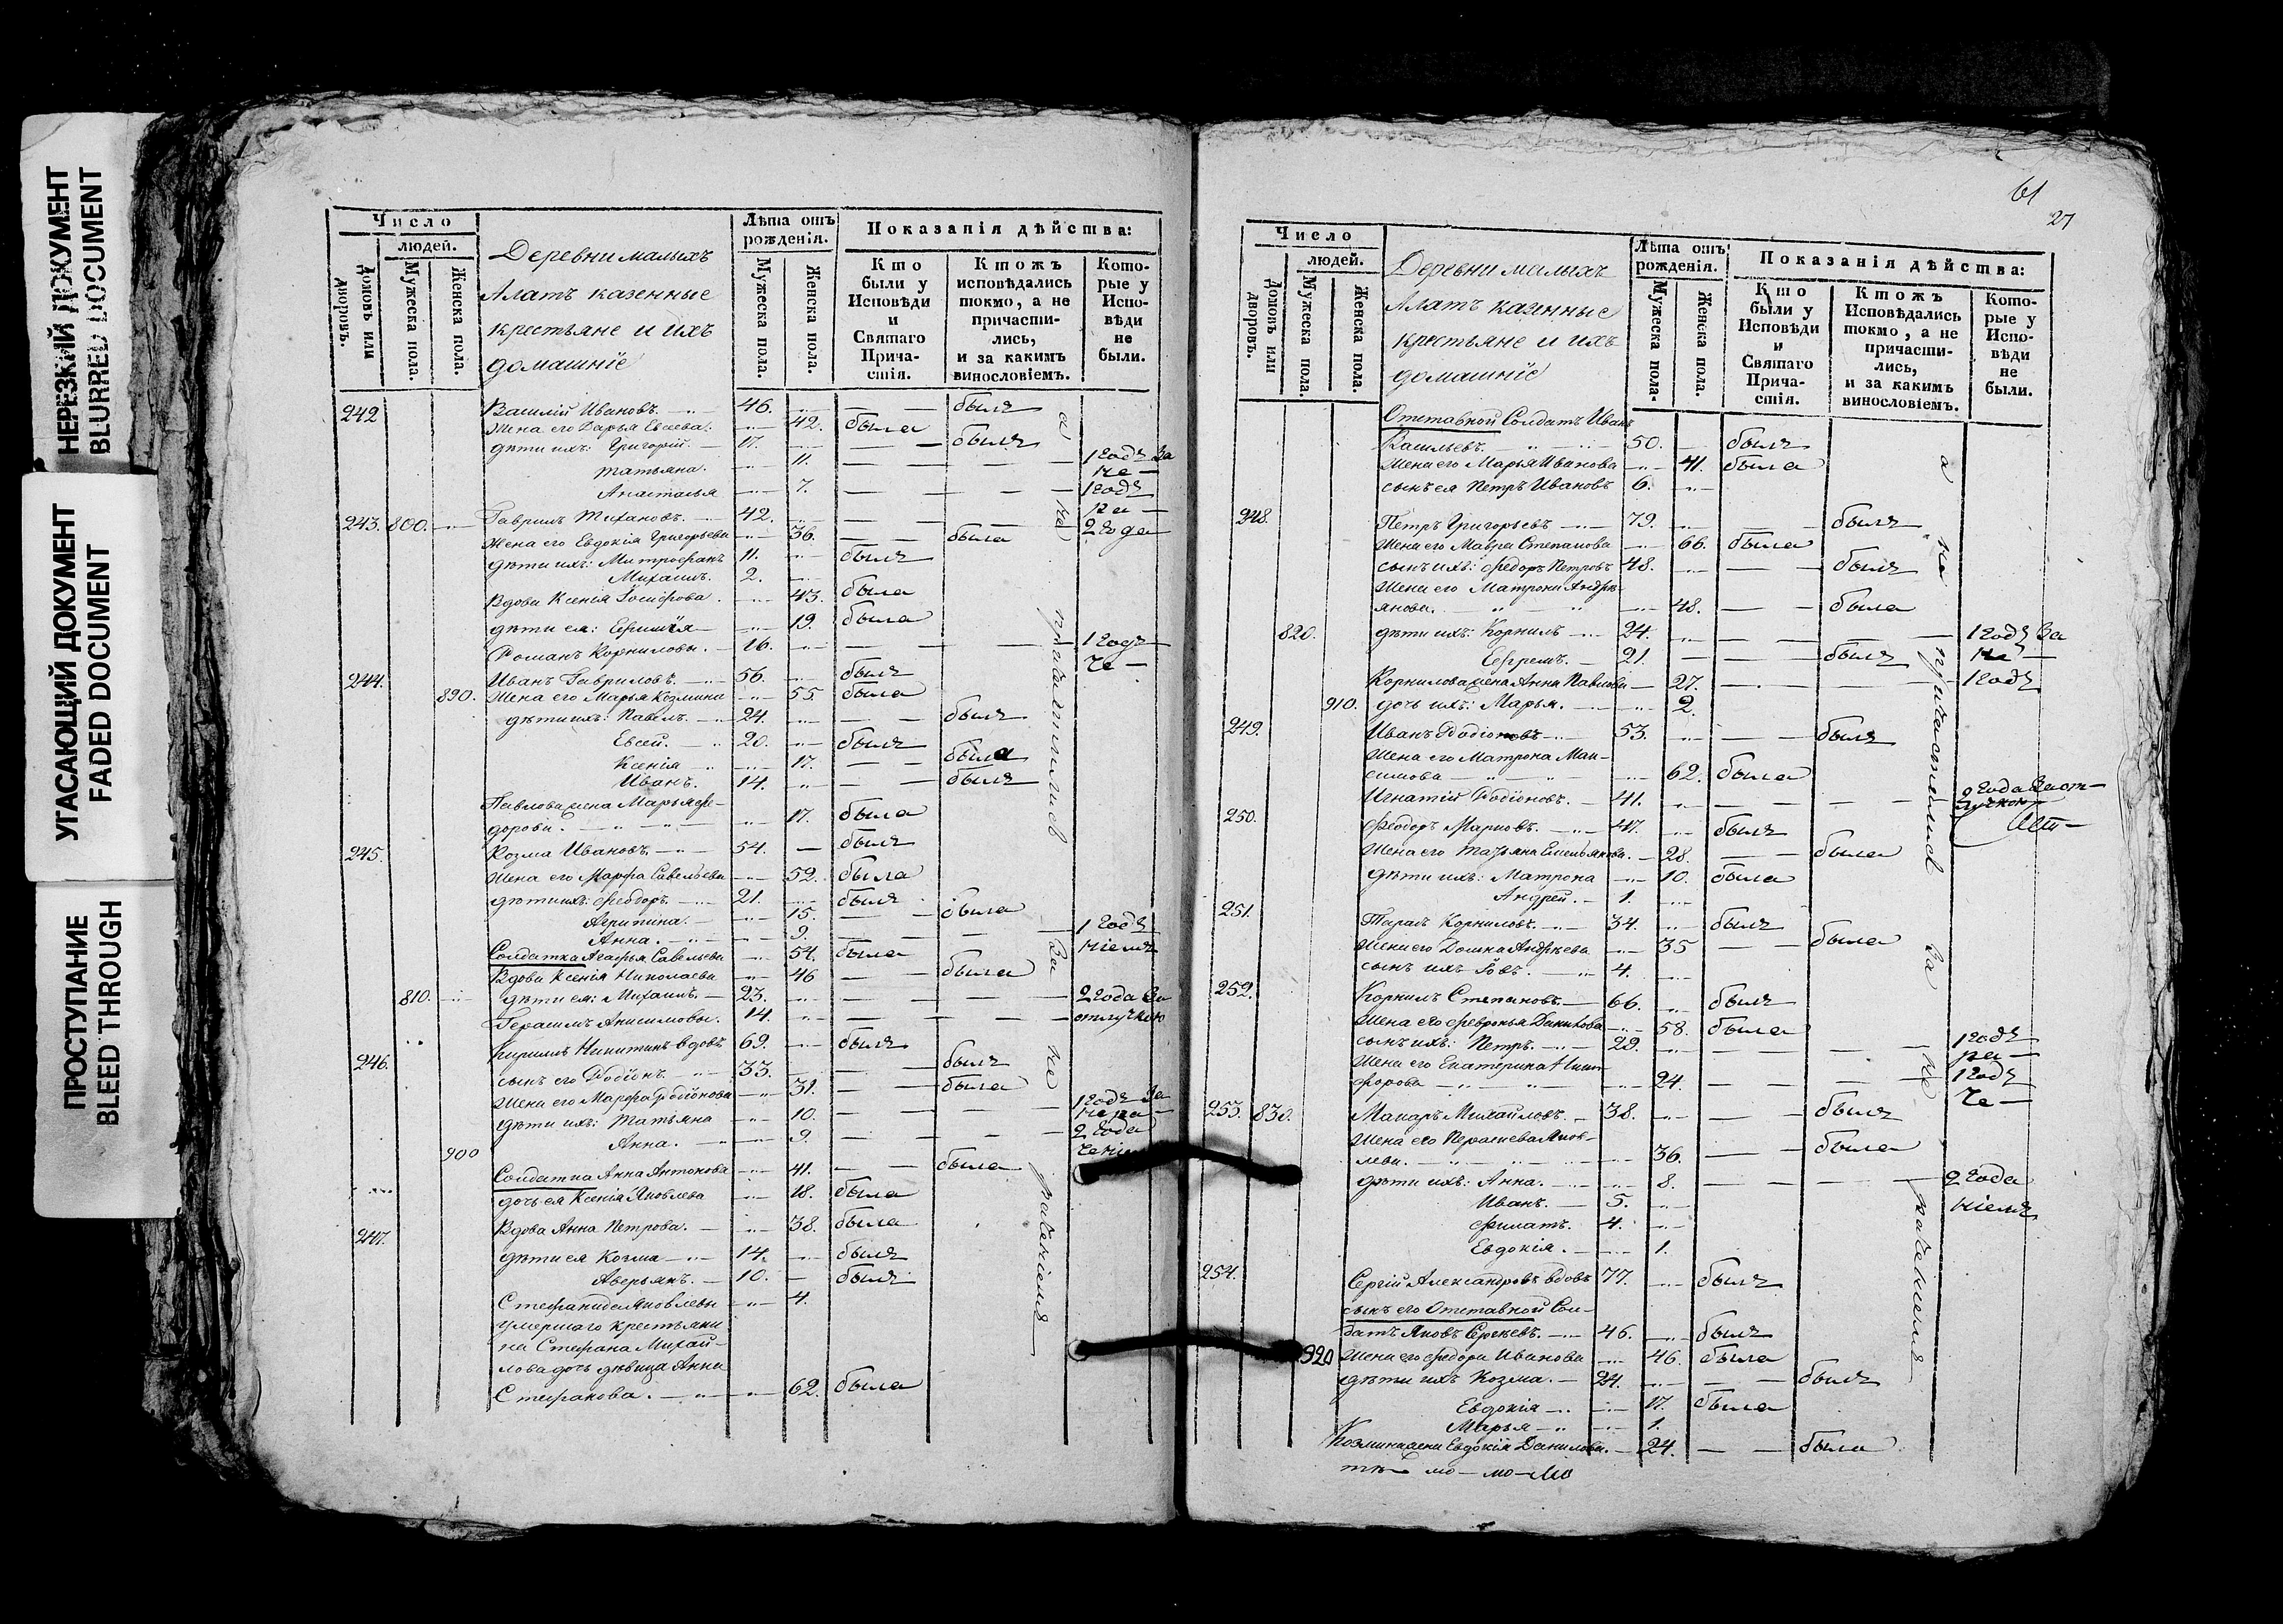 НЕРЕЗКИЙ ДОКУМЕНТ
BLURRED DOCUMENT
УГАСАЮЩИЙ ДОКУМЕНТ
FADED DOCUMENT
ПРОСТУПАНИЕ
BLEED THROUGH
Число
людей.
домовъ или дворовъ.
Мужеска пола.
Женска пола.
Деревни малыхъ
Алатъ казенные
крестьяне и ихъ
домашніе
Лѣта отъ рожденія.
Мужеска пола.
Женска пола.
Показанія дѣйства:
Кто были у Исповѣди и Святаго Причастія.
Ктожъ исповѣдались токмо, а не причастились, и за какимъ винословіемъ.
Которые у Исповѣди не были.
242 Василій Ивановъ. 46. былъ
Жена его Дарья Евсеева. 42. была
дѣти ихъ: Григорій. 17. былъ
Татьяна. 11. 1 годъ за
не
Анастасья 7. 1 годъ
ра
243. 800. Гаврилъ 42. 2 года
Жена его Евдокія Григорьева 36. была
дѣти ихъ: Митрофанъ 11. былъ
Михаилъ. 2.
Вдова Ксенія Іосифова. 43. была
дѣти ея: 19. была
Романъ Корниловы. 16. 1 годъ
че
244. Иванъ Гавриловъ. 56. былъ
890. Жена его Марья Козмина 55. была
дѣти ихъ: Павелъ. 24. былъ
Евсей. 20. былъ
Ксенія 17. была
Иванъ. 14. былъ
Павлова жена Марья Фе-
дорова. 17. была
245. Козма Ивановъ. 54. былъ
Жена его Марфа Савельева 52. была
дѣти ихъ: Феодоръ. 21. былъ
Агрипина. 15. была
Анна. 9. 1 годъ
ніемъ
Солдатка Агафья Савельева 54. была
Вдова Ксенія Николаева 46 была
810. дѣти ея: Михаилъ. 23. 2 года за
Герасимъ Анисимовы. 14. отлучкою
246. Кирилъ Никитинъ вдовъ 69. былъ
сынъ его Родіонъ. 33. былъ
Жена его Марфа Родіонова 31. была
дѣти ихъ: Татьяна 10. 1 годъ за
нера
900 Анна. 9. 2 года
Солдатка Анна Антонова 41. была
дочь ея Ксенія Яковлева 18. была
247. Вдова Анна Петрова. 38. была
дѣти ея Козма 14. былъ
Аверьянъ. 10. былъ
Стефанида Яковлевы 4.
умершаго крестьяни
на Стефана Михай-
лова дочь дѣвица Анна
Стефанова. 62. была
а не причастились За не раченіемъ
61
27
Число
людей.
домовъ или дворовъ.
Мужеска пола.
Женска пола.
Деревни малыхъ
Алатъ казенные
крестьяне и ихъ
домашніе
Лѣта отъ рожденія.
Мужеска пола.
Женска пола.
Показанія дѣйства:
Кто были у Исповѣди и Святаго Причастія.
Ктожъ Исповѣдались токмо, а не причастились, и за какимъ винословіемъ.
Которые у Исповѣди не были.
Отставной Солдатъ Иванъ
Васильевъ. 50. былъ
Жена его Марья Иванова 41. была
сынъ ея Петръ Ивановъ 6.
248. Петръ Григорьевъ 79. былъ
Жена его Мавра Степанова 66. была
сынъ ихъ: Федоръ Петровъ 48. былъ
Жена его Матрона Андре-
янова. 48. была
820. дѣти ихъ: Корнилъ 24. 1 годъ за
Ефремъ. 21. былъ не
Корнилова жена Анна Павлова 27. 1 годъ
910. дочь ихъ: Марья. 2.
249. Иванъ Родіоновъ 53. былъ
Жена его Матрона Мак-
симова 62. была
Игнатій Родіоновъ. 41. 2 года за от-
лучкою
250. Феодоръ Марковъ. 47. былъ
Жена его Татьяна Емельянова. 28. была
дѣти ихъ: Матрона 10. была
Андрей. 1.
251. Тарасъ Корниловъ. 34. былъ
Жена его Домна Андреева 35 была
сынъ ихъ Іовъ. 4.
252. Корнилъ Степановъ. 66. былъ
Жена его Февронья Данилова 58. была
сынъ ихъ: Петръ. 29. 1 годъ
ра
Жена его Екатерина Ники-
форова 24. 1 годъ
че
253. 830. Макаръ Михайловъ. 38. былъ
Жена его Парасева Яков-
лева. 36. была
дѣти ихъ: Анна. 8. 2 года
Иванъ. 5. ніемъ
Филатъ. 4.
Евдокія. 1.
254. Сергій Александровъ вдовъ 77. былъ
сынъ его Отставной Сол-
датъ Яковъ Сергѣевъ. 46. былъ
920 Жена его Федора Иванова 46. была
дѣти ихъ Козма. 24. былъ
Евдокія 17. была
Марья 1.
Козмина жена Евдокія Данилова. 24. была
а не причастились За не раченіемъ